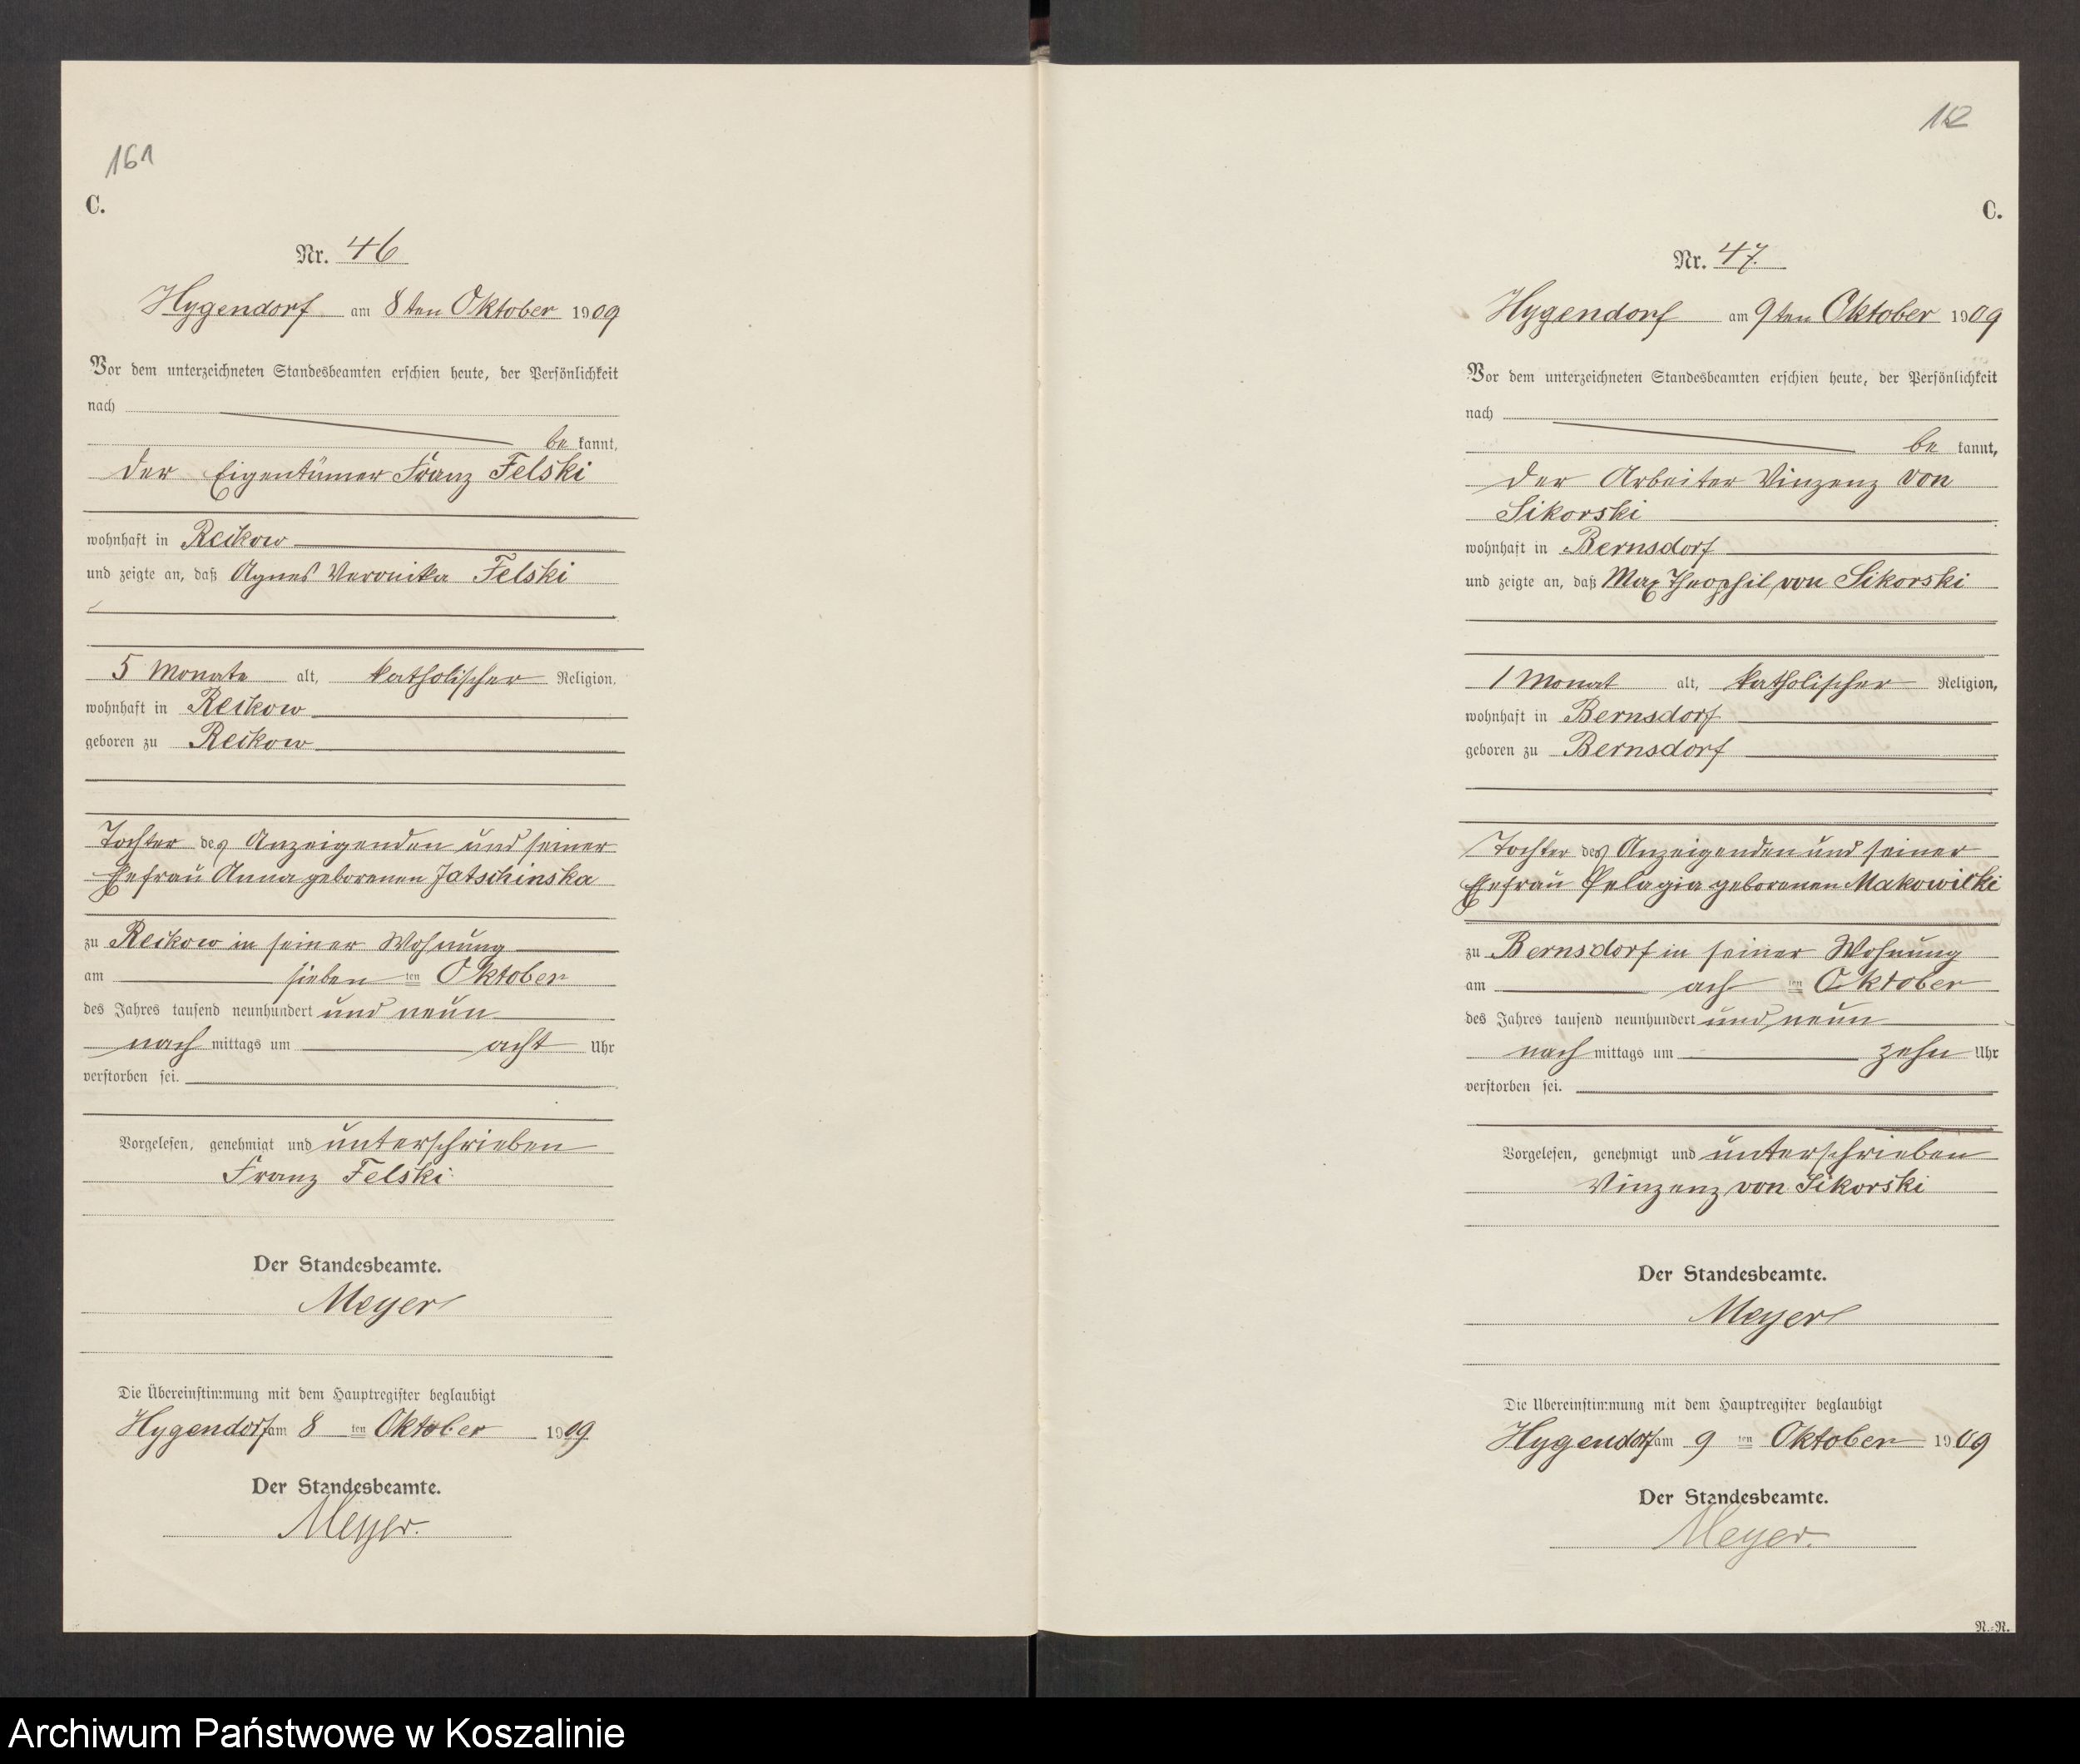 161
C.
Nr. 46
Hygendorf am 8ten Oktober 1909
Vor dem unterzeichneten Standesbeamten erschien heute, der Persönlichkeit
nach
be kannt,
der Eigentümer Franz Felski
wohnhaft in Reckow
und zeigte an, daß Agnes Veronika Felski
5 Monate alt, katholischer Religion,
wohnhaft in Reckow
geboren zu Reckow
Tochter des Anzeigenden und seiner
Ehefrau Anna geborenen Jatschinska
zu Reckow in seiner Wohnung
am sieben ten Oktober
des Jahres tausend neunhundert und neun
nach mittags um acht Uhr
verstorben sei.
Vorgelesen, genehmigt und unterschrieben
Franz Felski
Der Standesbeamte.
Meyer
Die Übereinstimmung mit dem Hauptregister beglaubigt
Hygendorf am 8 ten Oktober 1909
Der Standesbeamte.
Meyer.
C.
Nr. 47.
Hygendorf am 9ten Oktober 1909
Vor dem unterzeichneten Standesbeamten erschien heute, der Persönlichkeit
nach
be kannt,
der Arbeiter Vinzenz von
Sikorski
wohnhaft in Bernsdorf
und zeigte an, daß Max Theophil von Sikorski
1 Monat alt, katholischer Religion,
wohnhaft in Bernsdorf
geboren zu Bernsdorf
Tochter des Anzeigenden und seiner
Ehefrau Pelagia geborenen
zu Bernsdorf in seiner Wohnung
am ach ten Oktober
des Jahres tausend neunhundert und neun
nach mittags um zehn Uhr
verstorben sei.
Vorgelesen, genehmigt und unterschrieben
Vinzenz von Sikorski
Der Standesbeamte.
Meyer
Die Übereinstimmung mit dem Hauptregister beglaubigt
Hygendorf am 9 ten Oktober 1909
Der Standesbeamte.
Meyer.
N.-R.
Archiwum Państwowe w Koszalinie